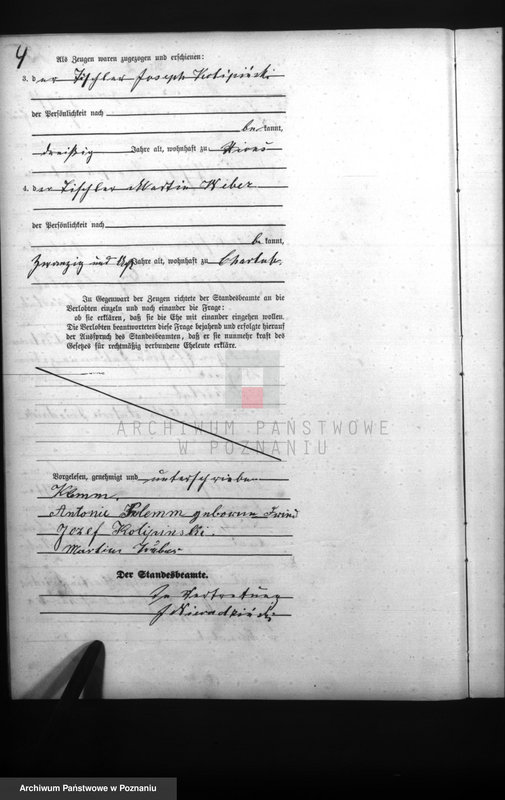 4
Als Zeugen waren zugezogen und erschienen:
3. der Tischler Joseph Kolipiński
der Persönlichkeit nach
be kannt,
dreißig Jahre alt, wohnhaft zu
4. der Tischler Martin Weber
der Persönlichkeit nach
be kannt,
zwanzig und Jahre alt, wohnhaft zu
In Gegenwart der Zeugen richtete der Standesbeamte an die
Verlobten einzeln und nach einander die Frage:
ob sie erklären, daß sie die Ehe mit einander eingehen wollen.
Die Verlobten beantworteten diese Frage bejahend und erfolgte hierauf
der Ausspruch des Standesbeamten, daß er sie nunmehr kraft des
Gesetzes für rechtmäßig verbundene Eheleute erkläre.
ARCHIWUM PAŃSTWOWE
W POZNANIU
Vorgelesen, genehmigt und unterschrieben
Klemm.
Antonie Klemm geborene
Jozef Kolipinski.
Martin Wäber
Der Standesbeamte.
In Vertretung
Archiwum Państwowe w Poznaniu